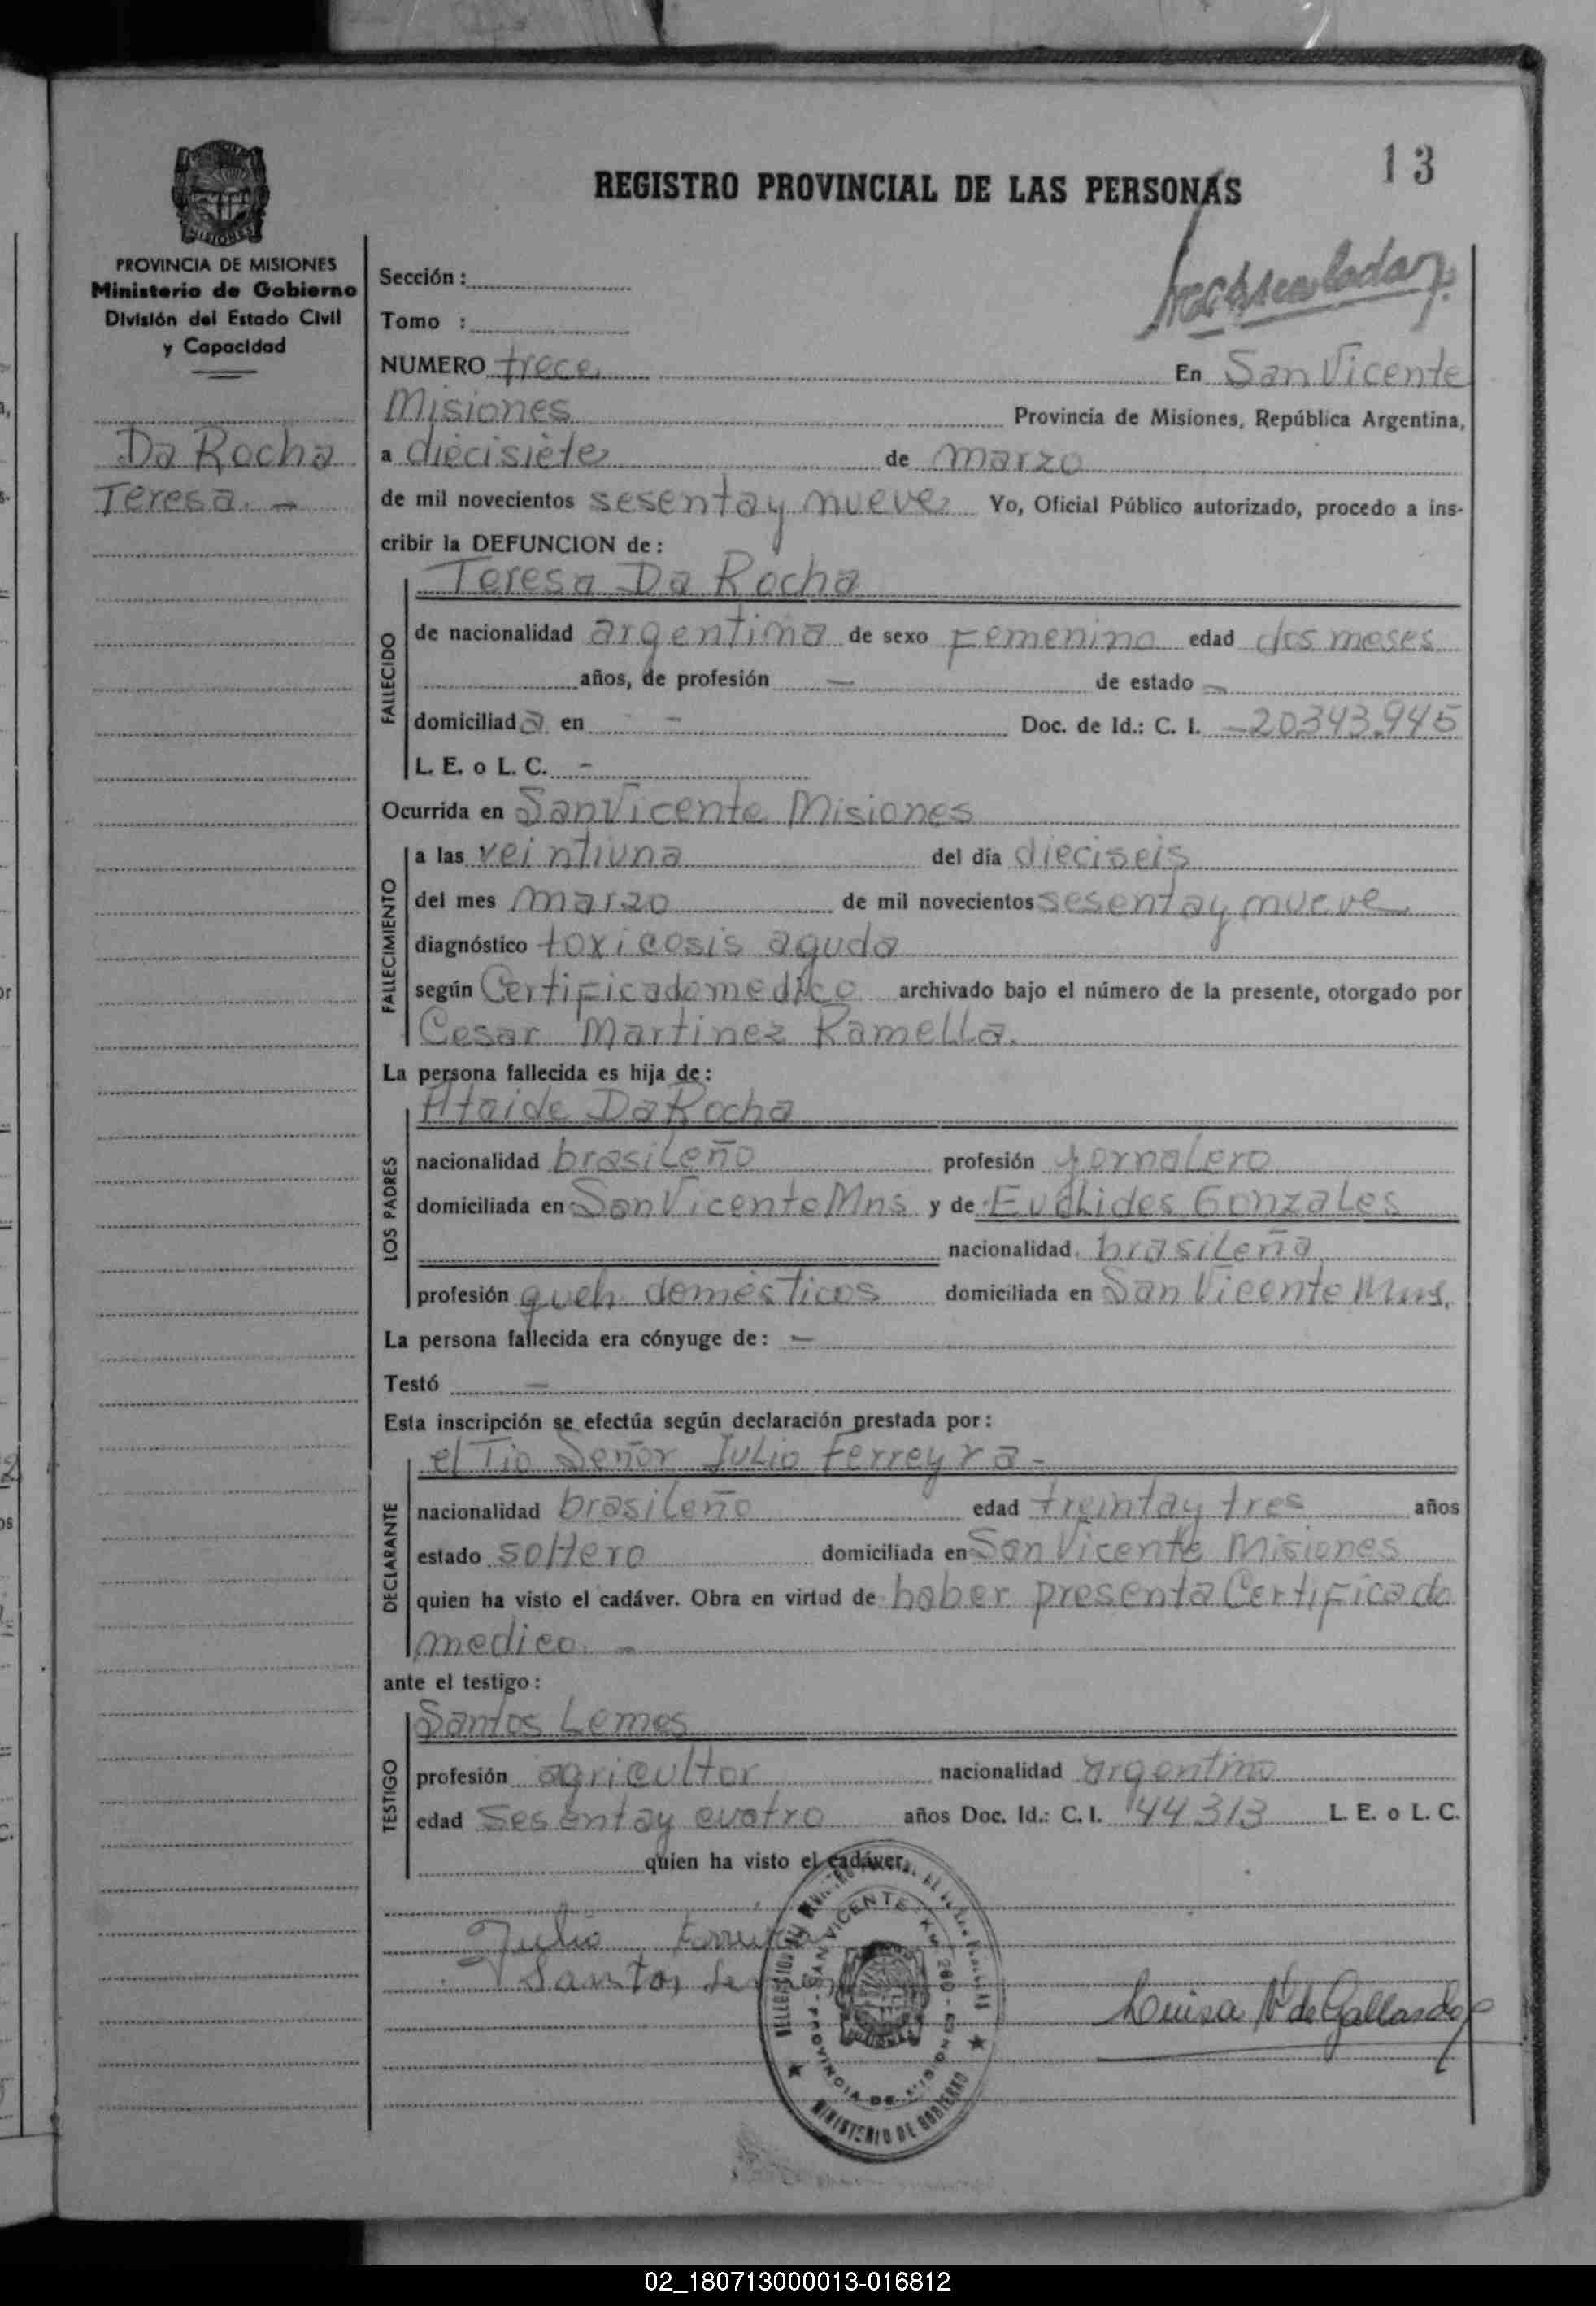 13
REGISTRO PROVINCIAL DE LAS PERSONAS
MISIONES
PROVINCIA DE MISIONES
Ministerio de Gobierno
División del Estado Civil
y Capacidad
Da Rocha
Teresa. -
Sección :
Tomo :
NUMERO trece En San Vicente
Misiones Provincia de Misiones, República Argentina,
a diecisiete de marzo
de mil novecientos sesenta y nueve Yo, Oficial Público autorizado, procedo a ins-
cribir la DEFUNCION de :
Teresa Da Rocha
FALLECIDO
de nacionalidad argentina de sexo Femenino edad dos meses
años, de profesión — de estado -
domiciliada en - Doc. de Id.: C. I. -20.343.945
L. E. o L. C. -
Ocurrida en San Vicente Misiones
FALLECIMIENTO
a las veintiuna del día dieciseis
del mes marzo de mil novecientos sesenta y nueve
diagnóstico toxicosis aguda
según Certificado medico archivado bajo el número de la presente, otorgado por
Cesar Martinez Ramella.
La persona fallecida es hija de :
LOS PADRES
Ataide Da Rocha
nacionalidad brasileño profesión jornalero
domiciliada en San Vicente Mns y de Euclides Gonzales
nacionalidad brasileña
profesión queh. domésticos domiciliada en San Vicente Mns.
La persona fallecida era cónyuge de : -
Testó —
Esta inscripción se efectúa según declaración prestada por :
DECLARANTE
el Tio Señor Julio Ferreyra -
nacionalidad brasileño edad treinta y tres años
estado soltero domiciliada en San Vicente Misiones
quien ha visto el cadáver. Obra en virtud de haber presenta Certificado
medico. -
ante el testigo :
TESTIGO
Santos Lemes
profesión agricultor nacionalidad argentino
edad sesenta y cuatro años Doc. Id.: C. I. 144313 L. E. o L. C.
quien ha visto el cadáver.
Julio Ferreira
Santos
Luisa de Gallardo
SAN VICENTE
PROVINCIA DE MISIONES
MINISTERIO DE GOBIERNO
02_180713000013-016812